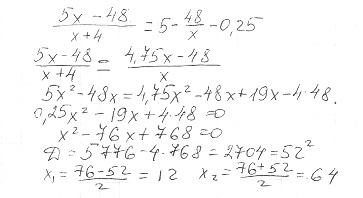 (5x - 48)/(x + 4) = 5 - 48/x - 0,25
(5x - 48)/(x + 4) = (4,75x - 48)/x
5x² - 48x = 4,75x² - 48x + 19x - 4·48.
0,25x² - 19x + 4·48 = 0
x² - 76x + 768 = 0
D = 5776 - 4·768 = 2704 = 52²
x₁ = (76 - 52)/2 = 12 x₂ = (76 + 52)/2 = 64